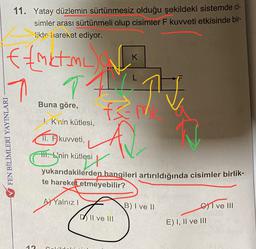 11. Yatay düzlemin sürtünmesiz olduğu şekildeki sistemde ci-
simler arası sürtünmeli olup cisimler F kuvveti etkisinde bir-
likte hareket ediyor.
K
L
Buna göre,
I. K'nin kütlesi,
II. F kuvveti,
III. L'nin kütlesi
yukarıdakilerden hangileri artırıldığında cisimler birlik-
te hareket etmeyebilir?
A) Yalnız I
B) I ve II
C) I ve III
D) II ve III
E) I, II ve III
FEN BİLİMLERİ YAYINLARI